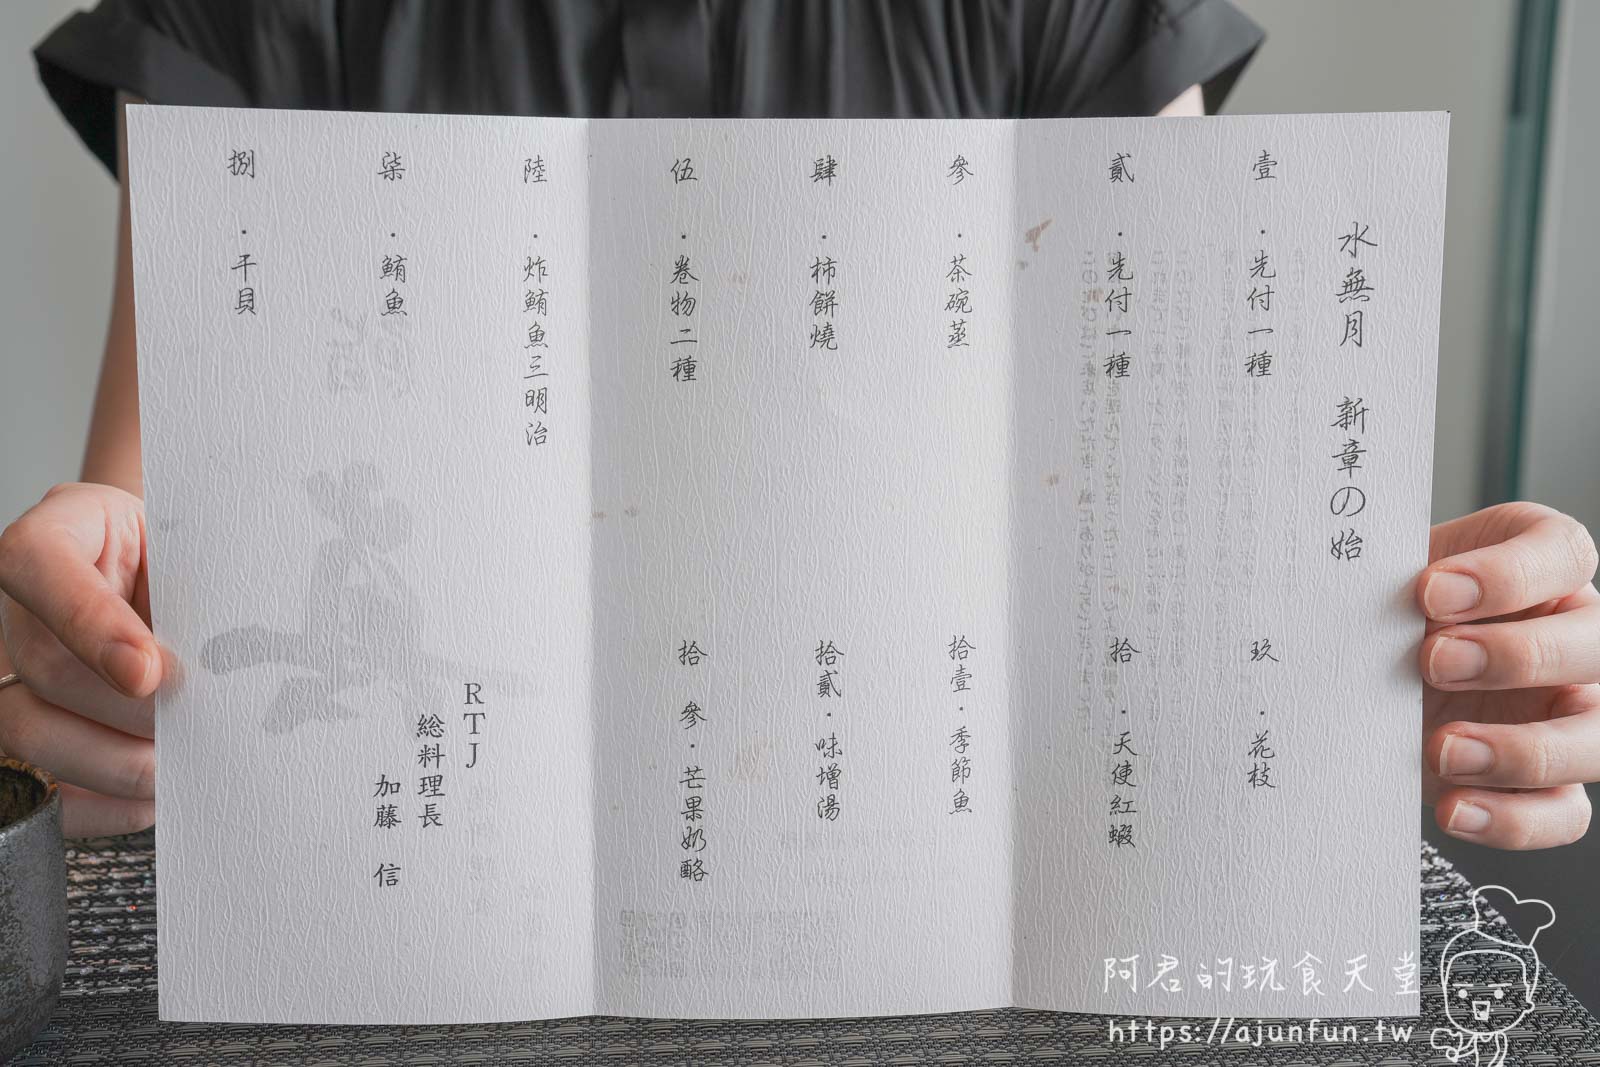 水無月 新章の始
壹・先付一種
貳・先付一種
參・茶碗蒸
肆・柿餅燒
伍・卷物二種
陸・炸鮪魚三明治
柒・鮪魚
捌・干貝
玖・花枝
拾・天使紅蝦
拾壹・季節魚
拾貳・味增湯
拾參・芒果奶酪
RTJ
総料理長
加藤 信
阿君的玩食天堂
https://ajunfun.tw